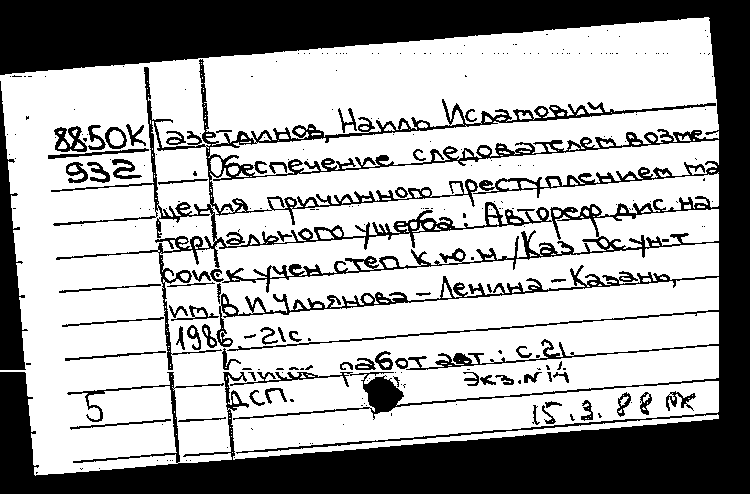 88-50К Газетдинов, Наиль Исламович.
932 . Обеспечение следователем возме-
щения причинного преступлением ма
териального ущерба: Автореф дис. на
соиск учен степ. к.ю.н. / Каз гос ун-т
им. В. И. Ульянова - Ленина - Казань,
1986. - 21с.
Список работ авт.: с. 21.
ДСП. Экз. №14
5
15.3.88